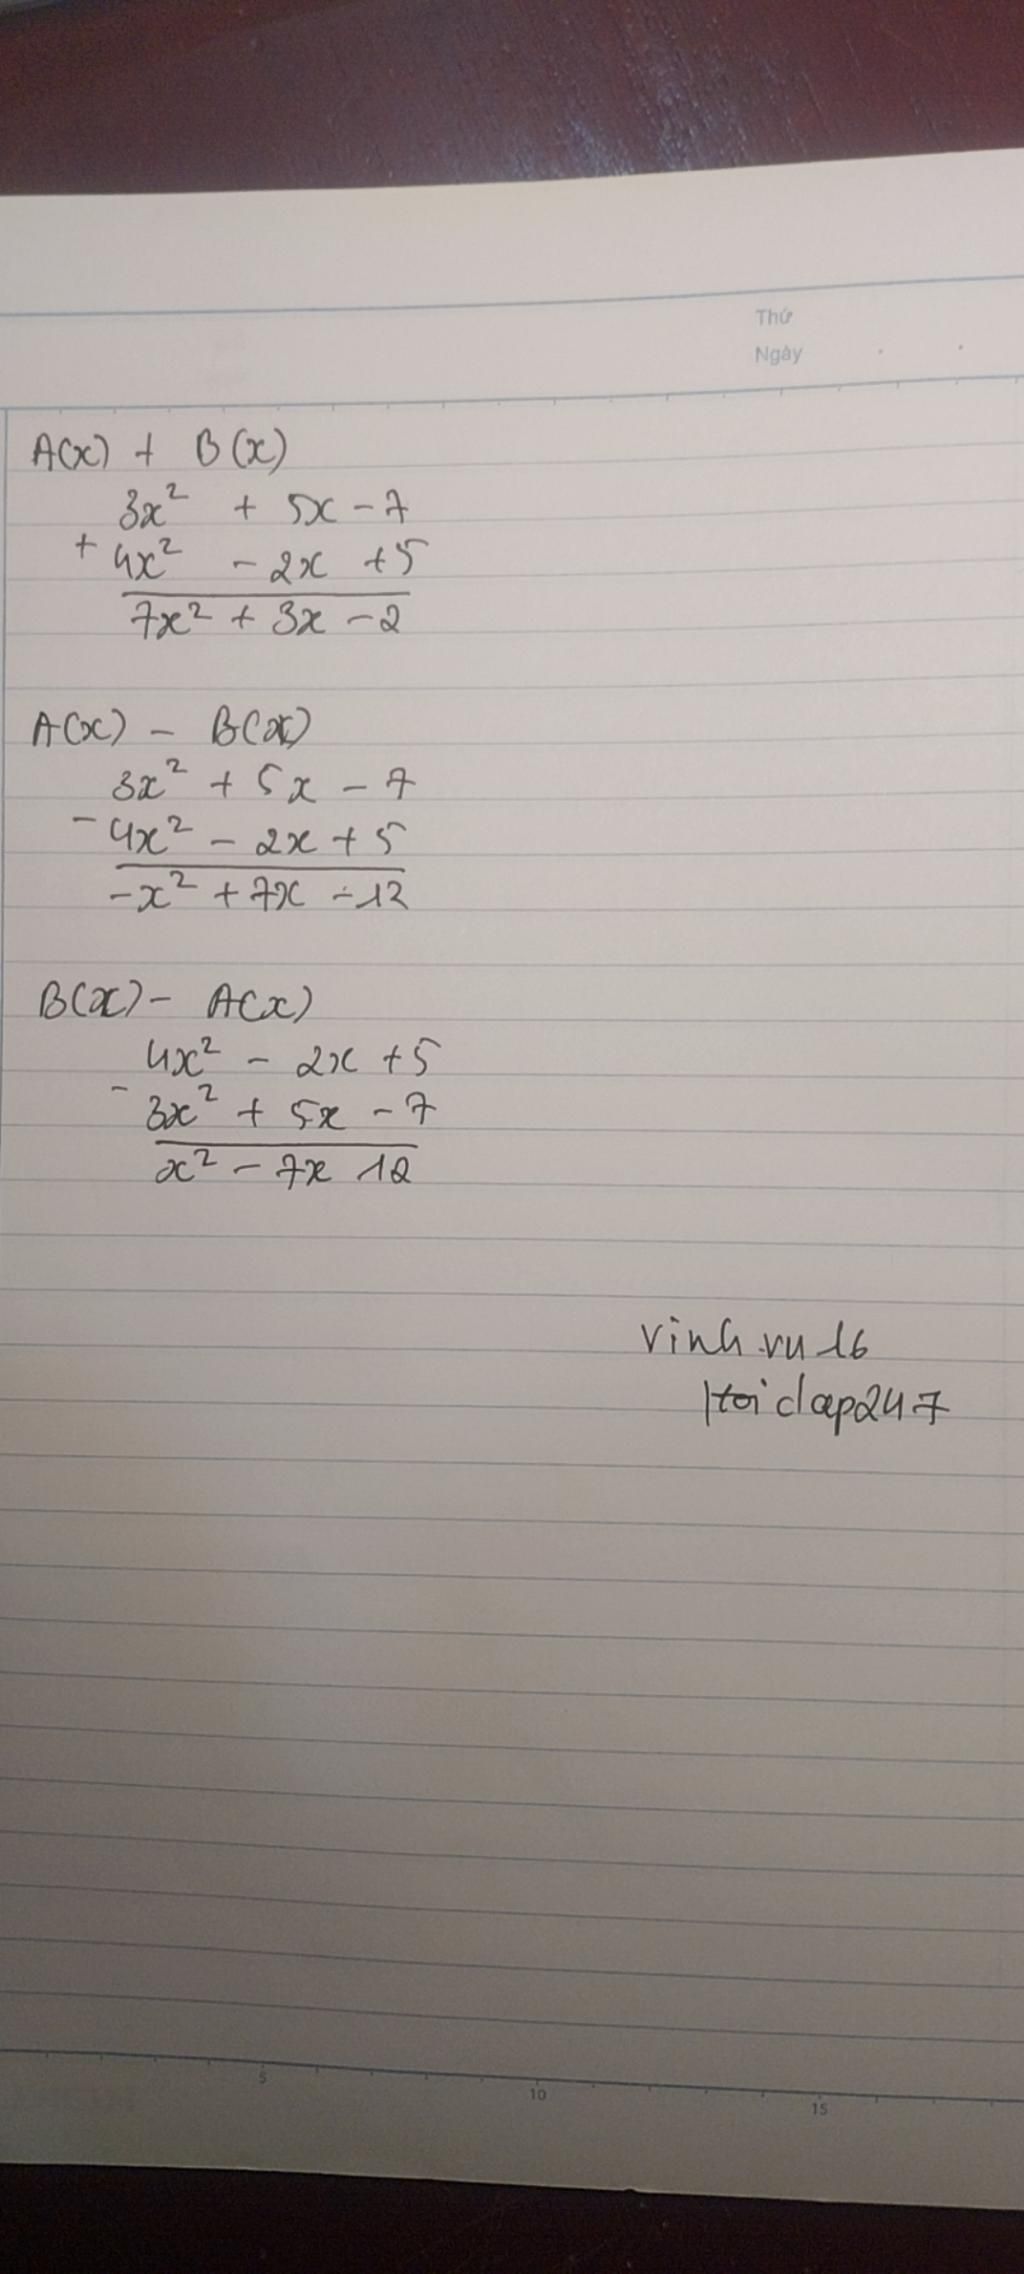 Thứ
Ngày
A(x) + B(x)
3x² + 5x - 7
+ 4x² - 2x + 5
7x² + 3x - 2
A(x) - B(x)
3x² + 5x - 7
- 4x² - 2x + 5
-x² + 7x - 12
B(x) - A(x)
4x² - 2x + 5
- 3x² + 5x - 7
x² - 7x 12
vinh.vu16
Hoidap247
5 10 15